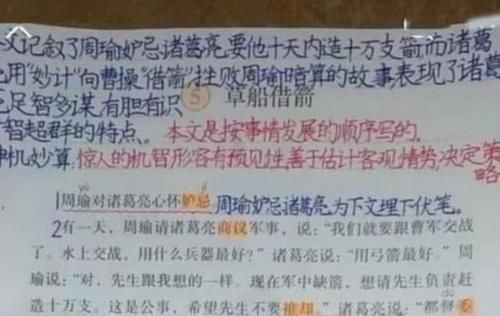 文记叙了周瑜妒忌诸葛亮,要他十天内造十万支箭,而诸葛
用"妙计"向曹操"借箭",挫败周瑜暗算的故事,表现了诸葛
足智多谋,有胆有识
5 草船借箭
智超群的特点。本文是按事情发展的顺序写的.
神机妙算:惊人的机智形容有预见性,善于估计客观情势,决定策
略
yú jì
1周瑜对诸葛亮心怀妒忌 周瑜妒忌诸葛亮为下文埋下伏笔。
2有一天,周瑜请诸葛亮商议军事,说:“我们就要跟曹军交战
了。水上交战,用什么兵器最好?”诸葛亮说:“用弓箭最好。”周
瑜说:“对,先生跟我想的一样。现在军中缺箭,想请先生负责赶
造十万支。这是公事,希望先生不要推却。”诸葛亮说:“都督委